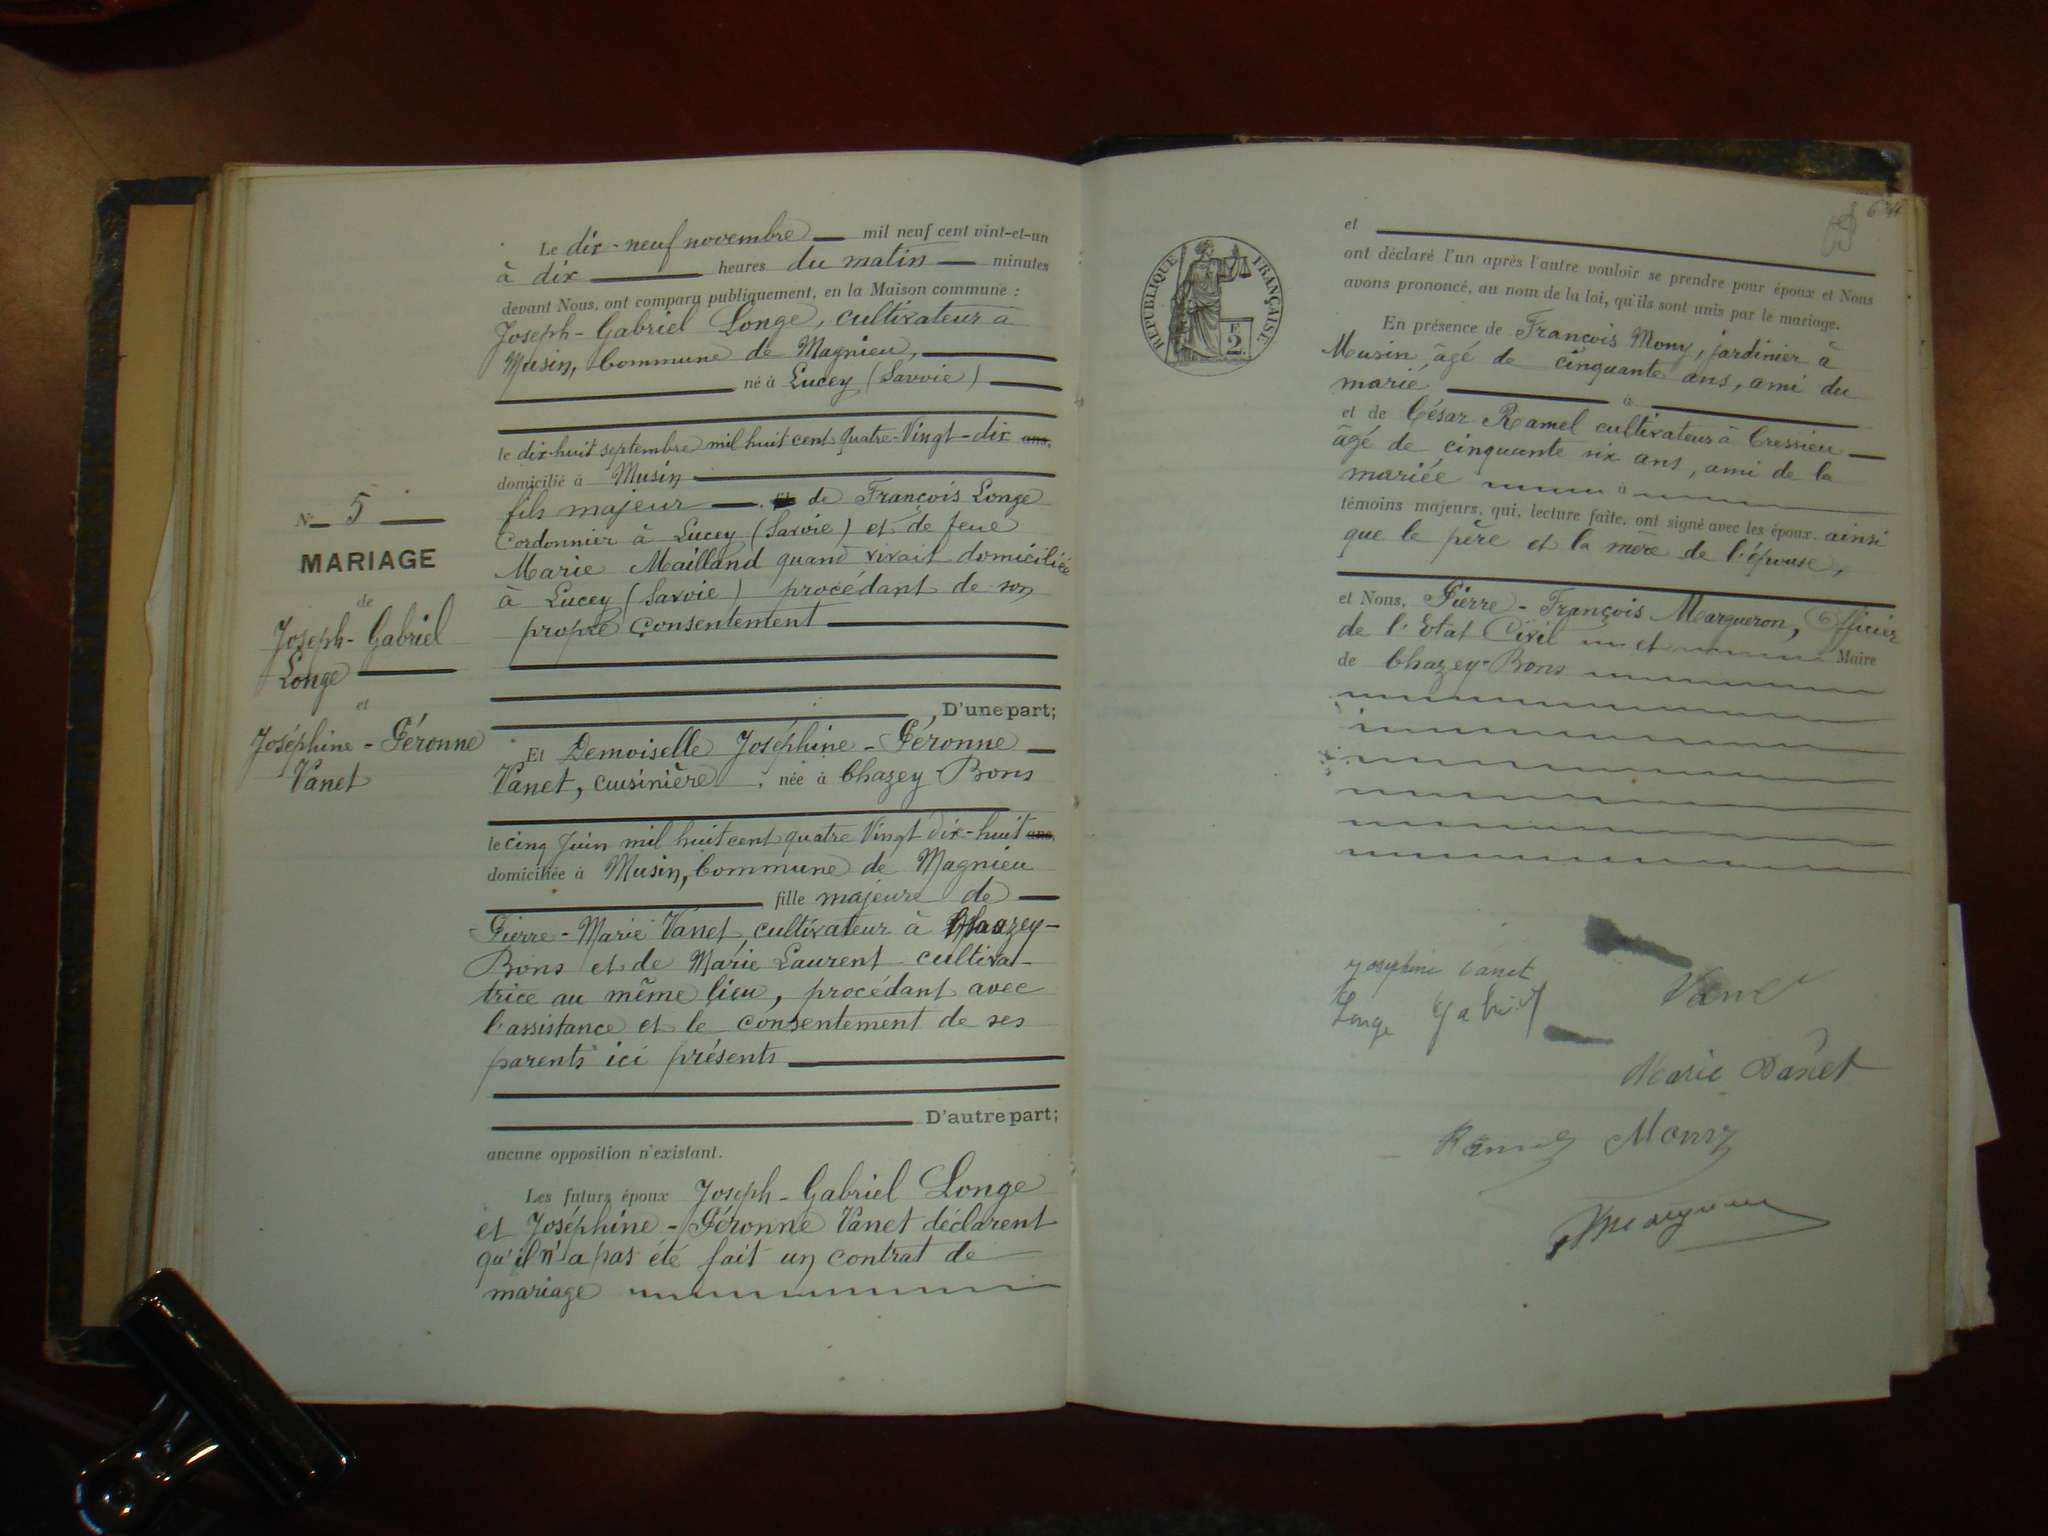 Le dix-neuf novembre mil neuf cent vint-et-un
à dix heures du matin minutes
devant Nous, ont comparu publiquement, en la Maison commune :
Joseph-Gabriel Longe, cultivateur à
Musin, Commune de Magnieu,
né à Lucey (Savoie)
le dix-huit septembre mil huit cent quatre-Vingt-dix ans,
domicilié à Musin
fils majeur de François Longe
Cordonnier à Lucey (Savoie) et de feue
Marie Mailland quand vivait domiciliée
à Lucey (Savoie) procédant de son
propre consentement
N° 5
MARIAGE
de
Joseph-Gabriel
Longe
et
Joséphine-Péronne
Vanet
D'une part;
Et Demoiselle Joséphine-Péronne
Vanet, cuisinière, née à Chazey Bons
le cinq Juin mil huit cent quatre Vingt Dix-huit ans,
domiciliée à Musin, Commune de Magnieu
fille majeure de
Pierre-Marie Vanet, cultivateur à Chazey-
Bons et de Marie Laurent cultiva-
trice au même lieu, procédant avec
l'assistance et le consentement de ses
parents ici présents
D'autre part;
aucune opposition n'existant.
Les futurs époux Joseph-Gabriel Longe
et Joséphine-Péronne Vanet déclarent
qu'il n'a pas été fait un contrat de
mariage
RÉPUBLIQUE FRANÇAISE
2
et
ont déclaré l'un après l'autre vouloir se prendre pour époux et Nous
avons prononcé, au nom de la loi, qu'ils sont unis par le mariage.
En présence de François Mony, jardinier à
Musin âgé de cinquante ans, ami du
marié à
et de César Ramel cultivateur à Cressieu
âgé de cinquante six ans, ami de la
mariée à
témoins majeurs, qui, lecture faite, ont signé avec les époux. ainsi
que le père et la mère de l'épouse,
et Nous, Pierre-François Margueron, Officier
de l'Etat Civil et Maire
de Chazey-Bons
Joséphine Vanet
Longe Gabriel
Vanet
Marie Vanet
Ramel Mony
Margueron